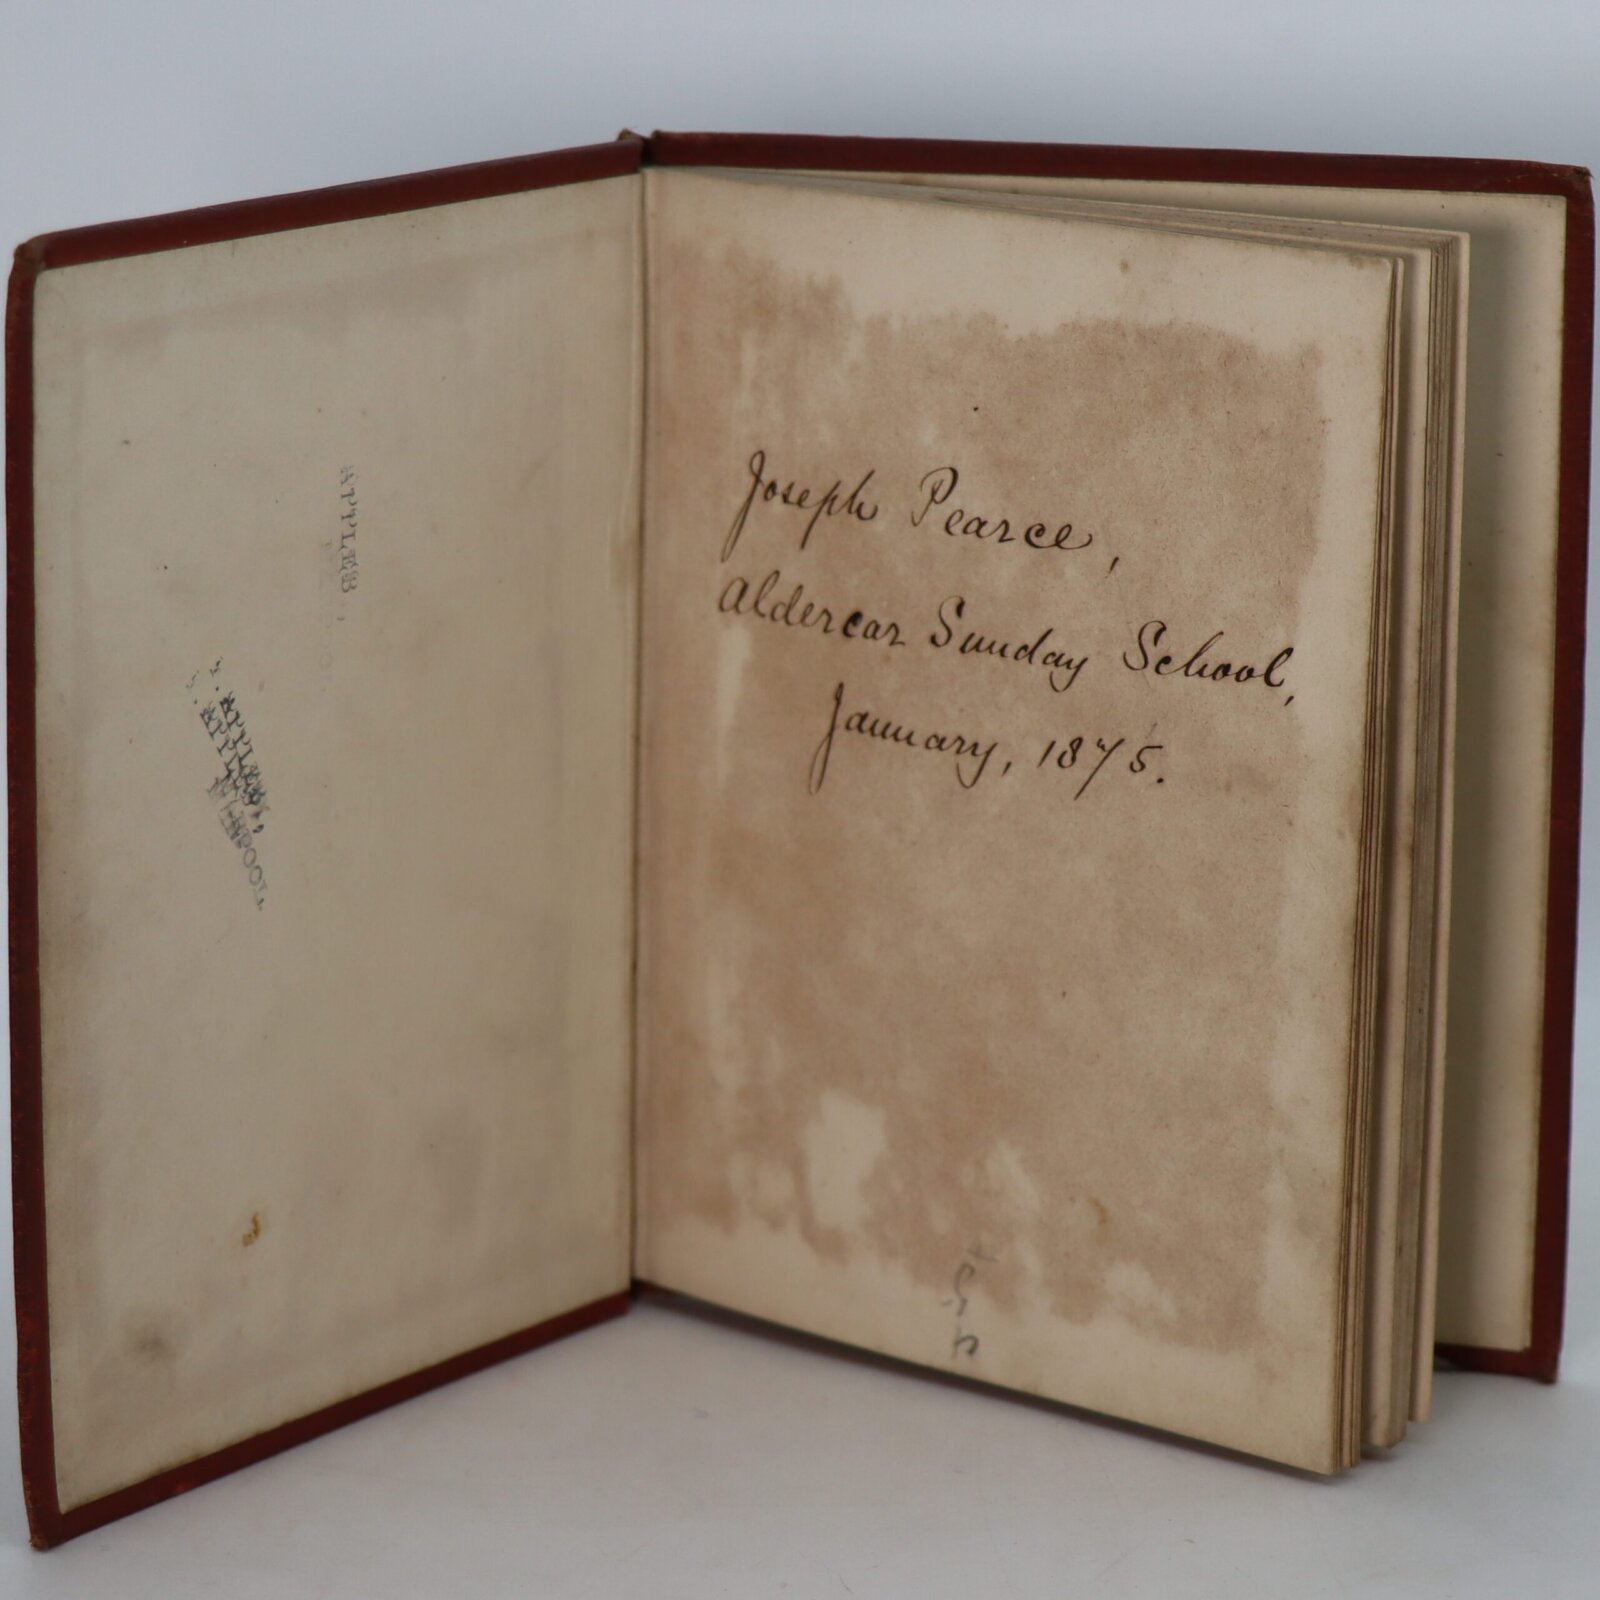 APPLEB
Joseph Pearce,
Aldercar Sunday School,
January, 1875.